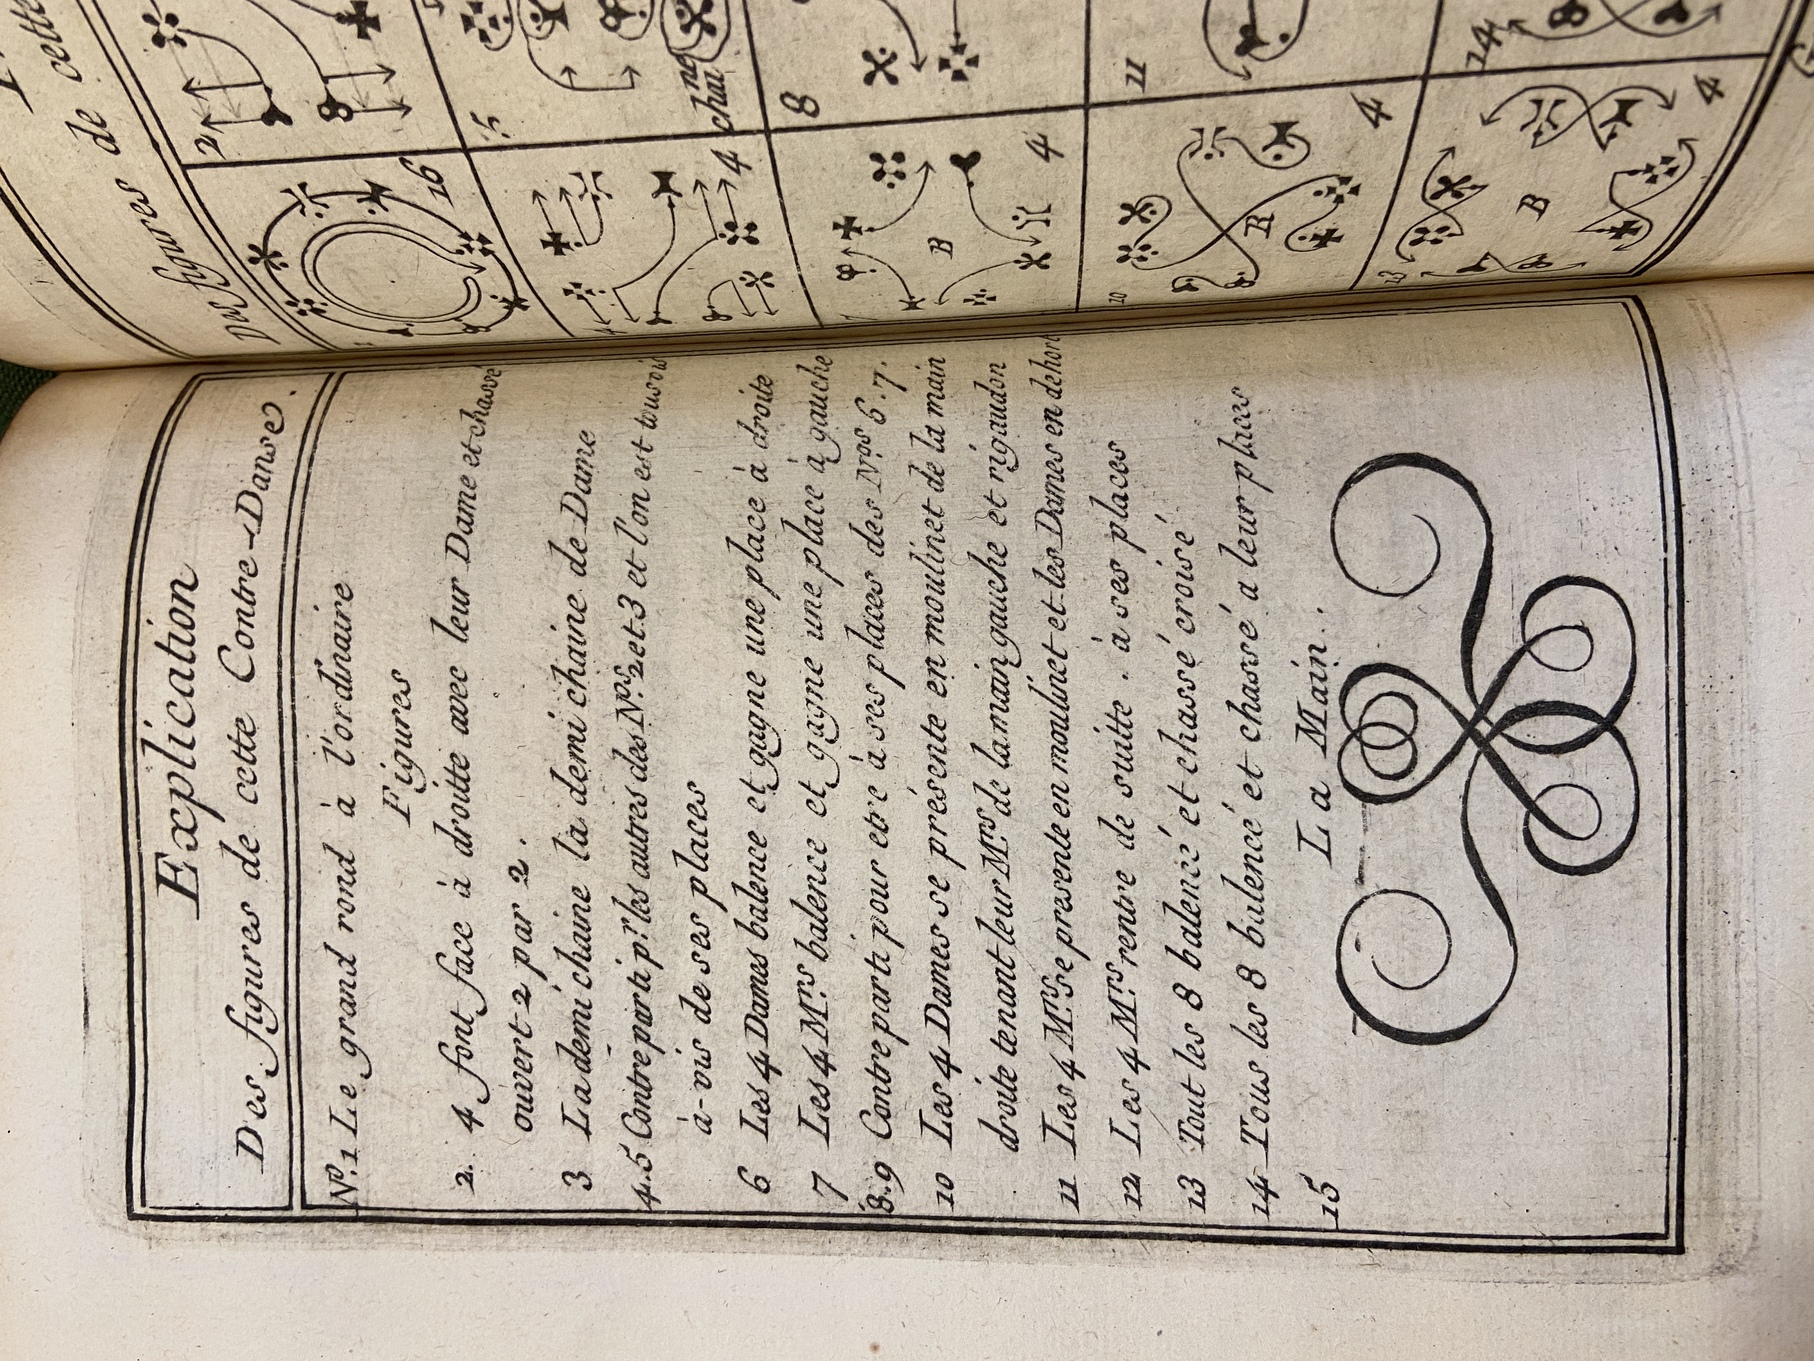 Explication
Des figures de cette Contre-Danse.
No. 1 Le grand rond à l'ordinaire
Figures
2. 4 font face à droitte avec leur Dame et chassé
ouvert 2 par 2.
3 La demi chaine la demi chaine de Dame
4.5 Contre parti pr. les autres des Nos. 2 et 3 et l'on est tous vis
à-vis de ses places
6 Les 4 Dames balence et gagne une place à droite
7 Les 4 Mrs. balence et gagne une place à gauche
8.9 Contre parti pour etre à ses places des Nros 6.7.
10 Les 4 Dames se présente en moulinet de la main
droite tenant leur Mrs. de la main gauche et rigaudon
11 Les 4 Mrs. se presente en moulinet et les Dames en dehors
12 Les 4 Mrs. rentre de suitte . à ses places
13 Tout les 8 balencé et chassé croisé
14 Tous les 8 balencé et chassé a leur places
15 La Main.
Des figures de cette
16
2
4
5
chne
4
B
8
10
4
R
11
13
4
B
14